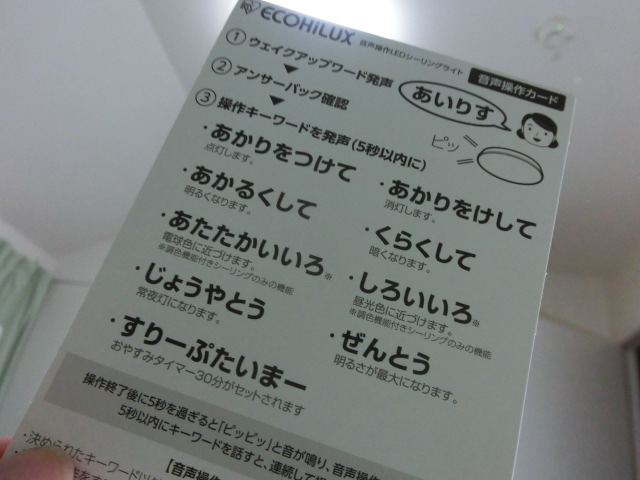 ECOHiLUX 音声操作LEDシーリングライト
音声操作カード
① ウェイクアップワード発声
② アンサーバック確認
③ 操作キーワードを発声(5秒以内に)
あいりす
ピッ
・あかりをつけて
点灯します。
・あかりをけして
消灯します。
・あかるくして
明るくなります。
・くらくして
暗くなります。
・あたたかいいろ※
電球色に近づけます。
※調色機能付きシーリングのみの機能
・しろいいろ※
昼光色に近づけます。
※調色機能付きシーリングのみの機能
・じょうやとう
常夜灯になります。
・ぜんとう
明るさが最大になります。
・すりーぷたいまー
おやすみタイマー30分がセットされます
操作終了後に5秒を過ぎると「ピッピッ」と音が鳴り、音声操作
5秒以内にキーワードを話すと、連続して
【音声操作
・決められたキーワード以